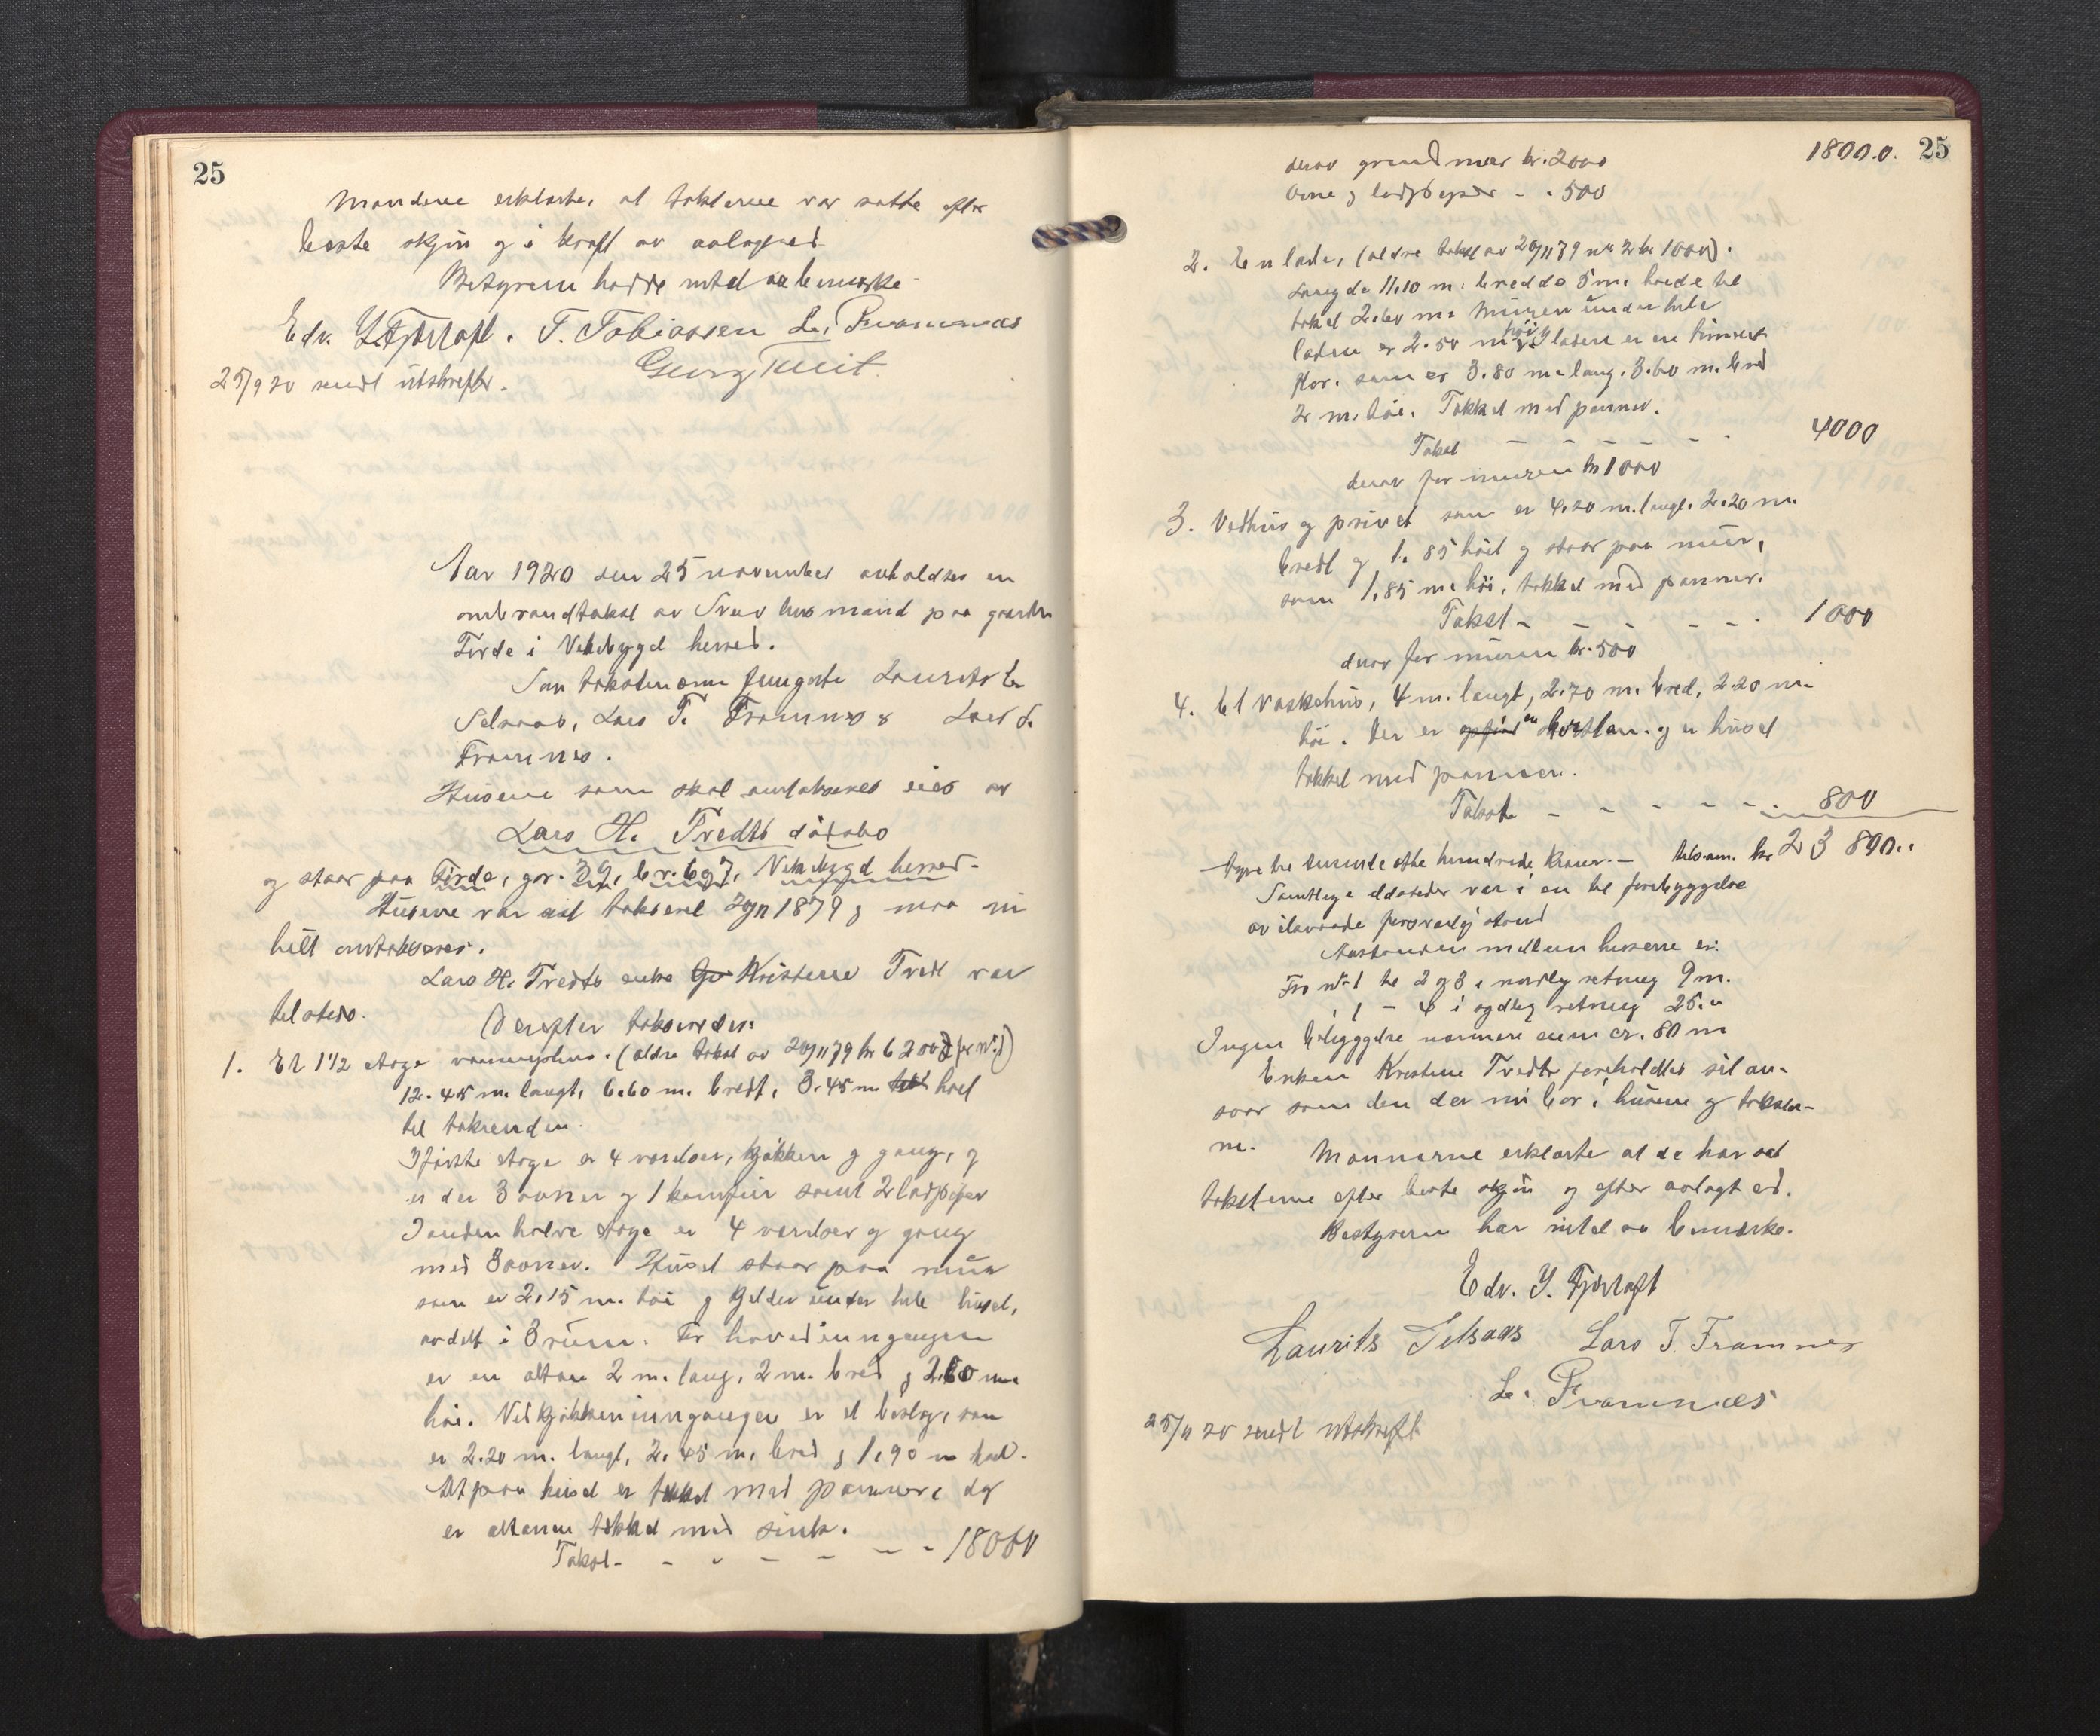 25
Mændene erklærte, at taksterne var satte efter
beste skjøn og i kraft av avlagt ed
Bestyreren hadde intet aa bemerke
Edv. Y. Fjørtoft. T. Tobiassen L. Framnæs
Georg Tveit.
25/9 20 sendt utskrifter.
Aar 1920 den 25 november avholdtes en
ombrandtakst av husmand paa gaarden
Førde i Vikebygd herred.
Som takstmænn fungerte Laurits L.
Selsaas, Lars T. Framnes & Lars L.
Framnes.
Husene som skal omtakseres eies av
Lars H. Tredts dødsbo
og staar paa Førde, gnr. 39, br. 6 og 7, Vikebygd herred.
Husene var sist taksert 20/11 1879 og maa nu
helt omtakseres.
Lars H. Tredts enke Kristense Tredt var
tilstede.
Derefter takseredes:
1. Et 1 1/2 etage vaaningshus. (ældre takst av 20/11 79 kr 6200 for nr. 1)
12.45 m. langt, 6.60 m. bredt, 3.45 m høit
til takrenden.
I første etage er 4 værelser, kjøkken og gang, og
er der 3 ovner og 1 komfur samt 2 ladpiper
I anden halve etage er 4 værelser og gang
med 3 ovner. Huset staar paa mur
som er 2.15 m. høi og kjelder under hele huset,
avdelt i 3 rum. For hovedinngangen
er en altan 2 m. lang, 2 m. bred og 2.60 m.
høi. Ved kjøkkeninngangen er et bislag, som
er 2.20 m. langt, 2.45 m. bred og 1.90 m høit.
Alt paa huset er tækket med panner, dog
er altanen tækket med sink.
Takst - - - - - - - 18000
1800.0. 25
derav grundmur kr. 2000
Ovne og ladpiper - " 500
2. En lade, (ældre takst av 20/11 79 nr 2 kr 1000).
Længde 11.10 m. bredde 5 m. høide til
taket 2.60 m. Muren under hele
laden er 2.50 m høi. I laden er en tømret
flor. som er 3.80 m. lang. 3.60 m. bred
2 m. høi. Tækket med panner.
Takst - - - - - - 4000
derav for muren kr 1000
3. Vedhus og privet som er 4.20 m. langt. 2.20 m.
bredt og 1.85 høit og staar paa mur,
som 1.85 m. høi, tækket med panner.
Takst - - - - - - 1000
derav for muren kr. 500
4. Et vaskehus, 4 m. langt, 2.70 m. bred, 2.20 m.
høi. Der er en skorsten. og er huset
tækket med panner.
Takst - - - - - - 800
tyve tre tusinde otte hundrede kroner. - tilsam. kr 23 800..
Samtlige ildsteder var i en til forebyggelse
av ildsvaade forsvarlig stand
Avstanden mellem husene er:
Fra nr 1 til 2 og 3 i nordlig retning 9 m.
" 1 - 4 i sydlig retning 25. "
Ingen bebyggelse nærmere enn ca. 80 m
Enken Kristense Tredt foreholdtes sit an-
svar som den der nu bor i husene og takster-
ne. Mænnerne erklærte at de har sat
taksterne efter beste skjøn og efter avlagt ed.
Bestyreren har intet aa bemerke.
Edv. Y. Fjørtoft
Laurits Selsaas Lars T. Framnes
L. Framnæs
25/11 20 sendt utskrift